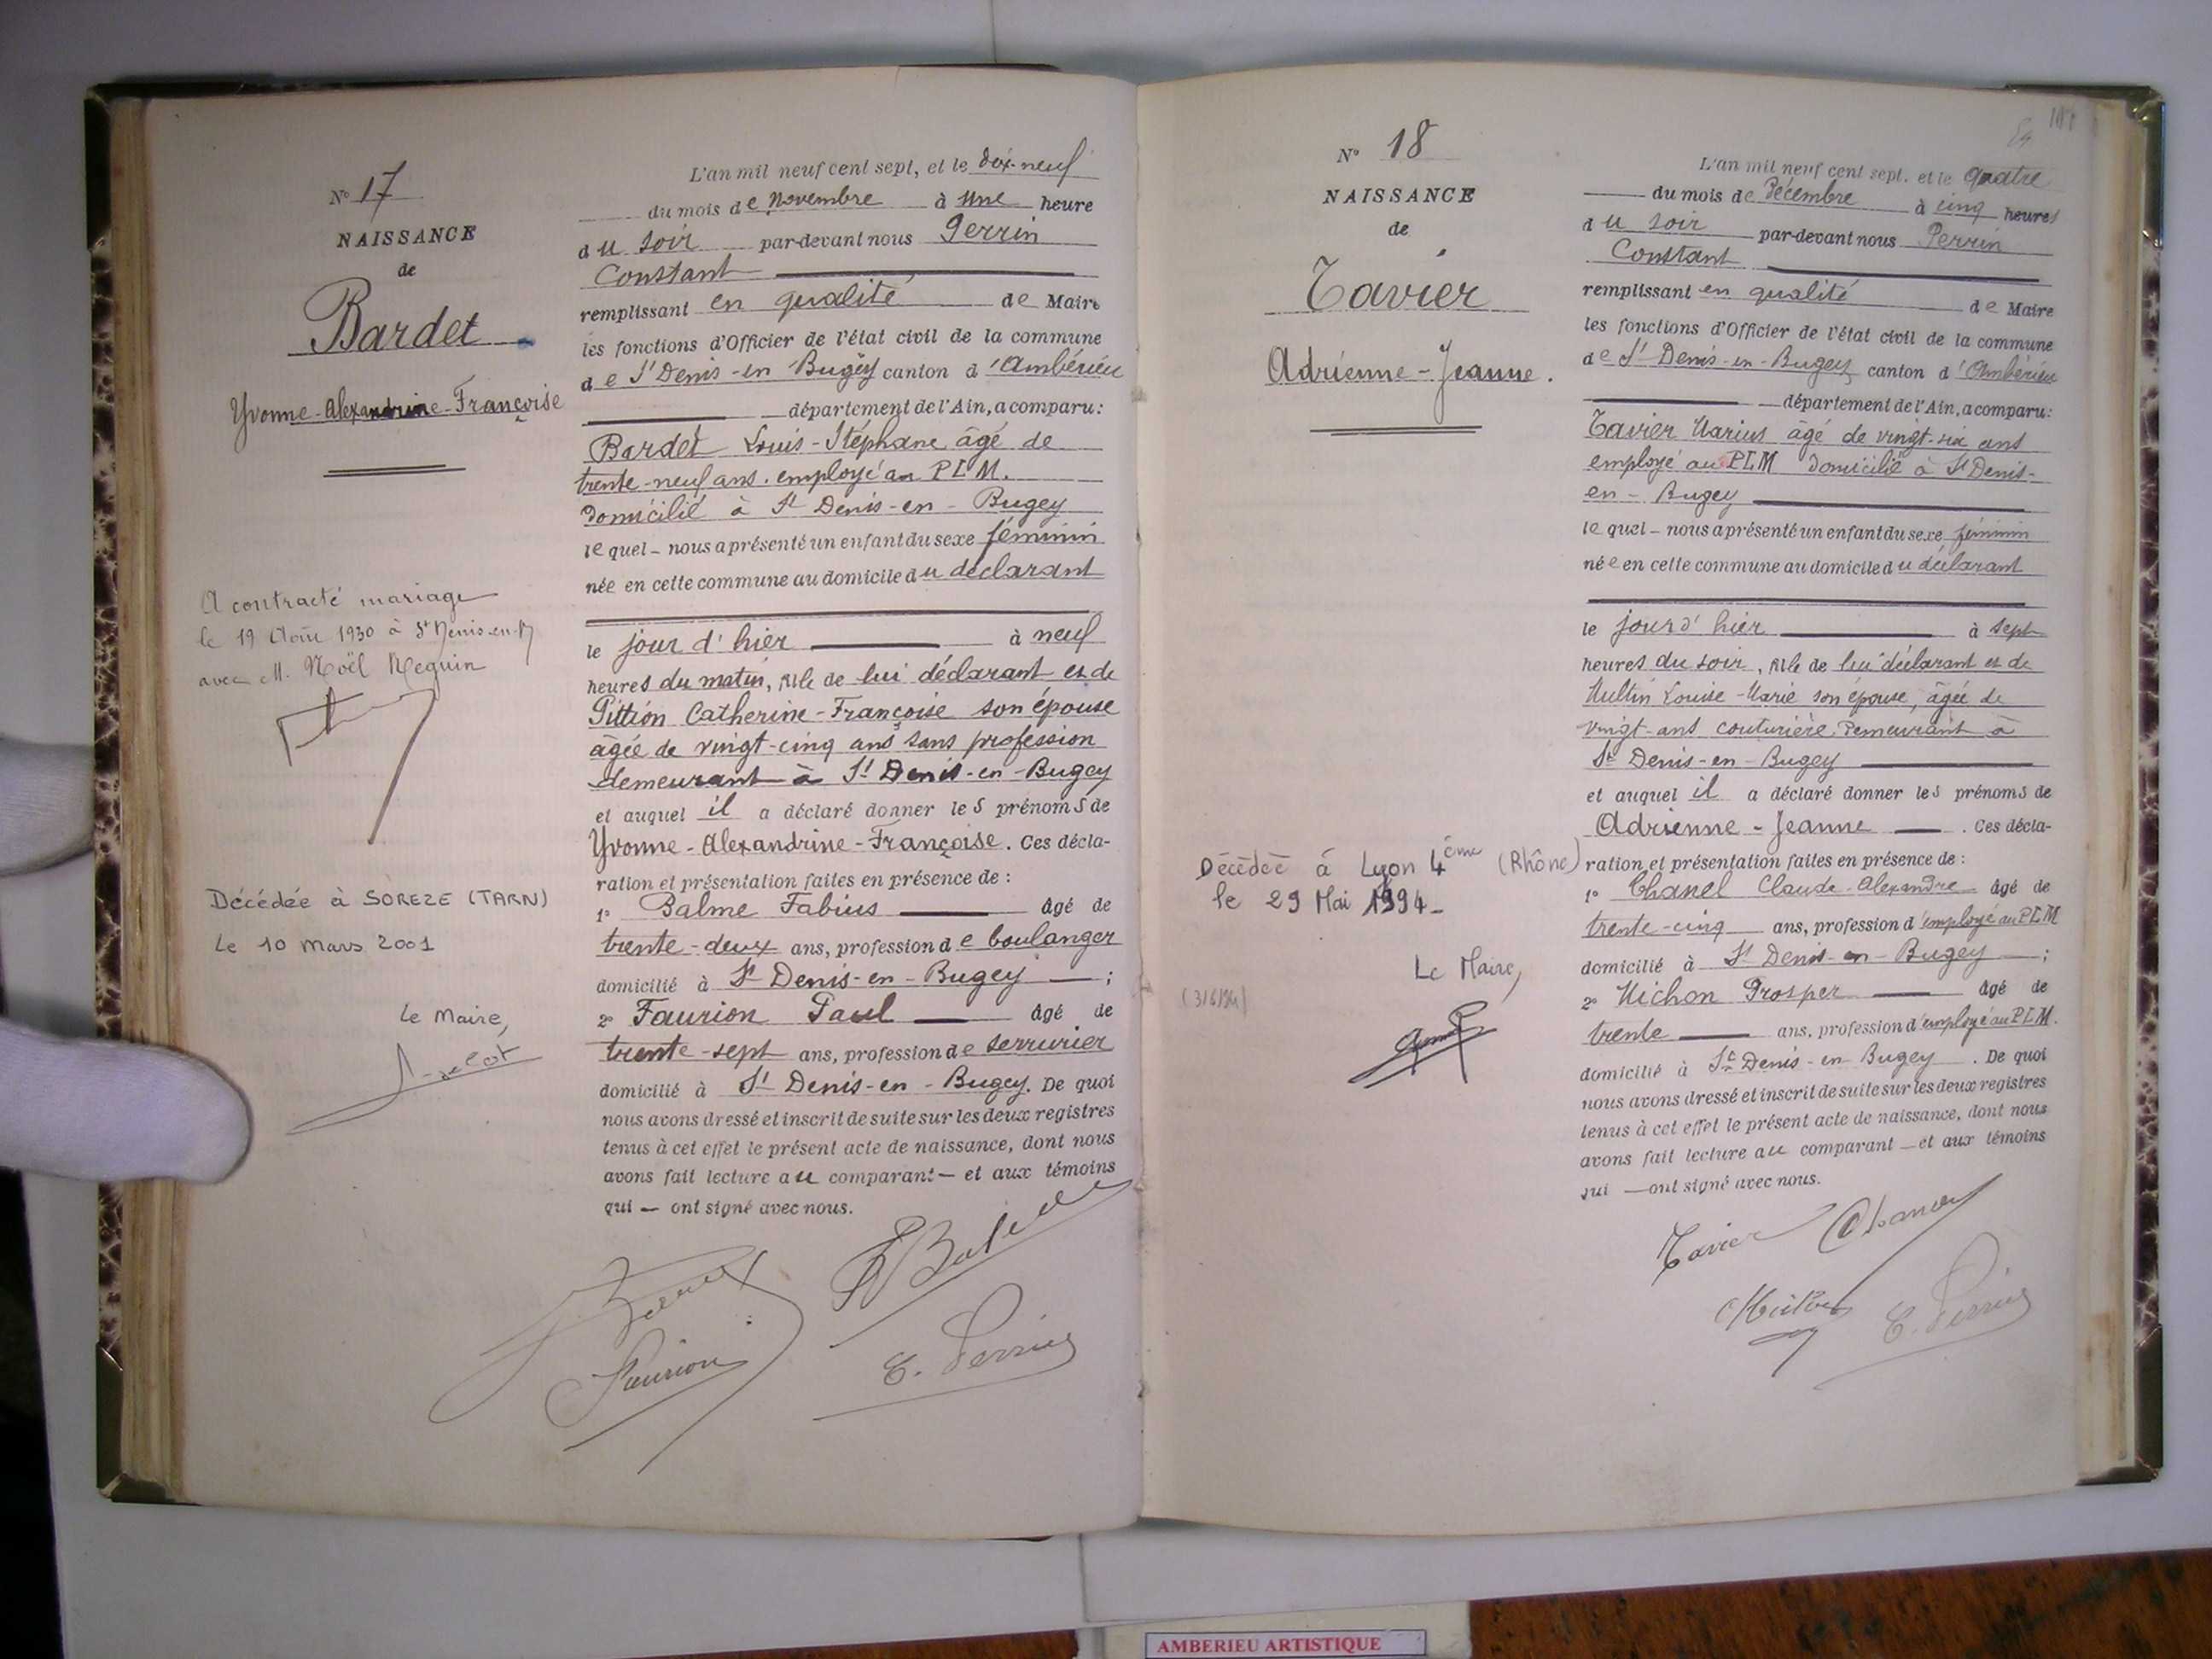 N° 17
NAISSANCE
de
Bardet
Yvonne-Alexandrine-Françoise
A contracté mariage
le 19 Août 1930 à St Denis-en-B
avec M. Noël Reguin
Décédée à SOREZE (TARN)
Le 10 Mars 2001
Le Maire,
L'an mil neuf cent sept, et le dix-neuf
du mois de Novembre à une heure
du soir par-devant nous Perrin
Constant
remplissant en qualité de Maire
les fonctions d'Officier de l'état civil de la commune
de St Denis-en-Bugey canton d'Ambérieu
département de l'Ain, a comparu:
Bardet Louis-Stéphane âgé de
trente-neuf ans. employé au PLM.
domicilié à St Denis-en-Bugey
le quel - nous a présenté un enfant du sexe féminin
née en cette commune au domicile du déclarant
le jour d'hier à neuf
heures du matin, fille de lui déclarant et de
Pittion Catherine-Françoise son épouse
âgée de vingt-cinq ans sans profession
demeurant à St Denis-en-Bugey
et auquel il a déclaré donner les prénoms de
Yvonne-Alexandrine-Françoise. Ces décla-
ration et présentation faites en présence de :
1° Balme Fabius âgé de
trente-deux ans, profession de boulanger
domicilié à St Denis-en-Bugey ;
2° Faurion Paul âgé de
trente-sept ans, profession de serrurier
domicilié à St Denis-en-Bugey. De quoi
nous avons dressé et inscrit de suite sur les deux registres
tenus à cet effet le présent acte de naissance, dont nous
avons fait lecture au comparant - et aux témoins
qui - ont signé avec nous.
Faurion
C. Perrin
N° 18
NAISSANCE
de
Tavier
Adrienne-Jeanne.
Décédée à Lyon 4ème (Rhône)
le 29 Mai 1994-
Le Maire,
(3/6/94)
L'an mil neuf cent sept. et le quatre
du mois de Décembre à cinq heures
du soir par-devant nous Perrin
Constant
remplissant en qualité de Maire
les fonctions d'Officier de l'état civil de la commune
de St Denis-en-Bugey canton d'Ambérieu
département de l'Ain, a comparu:
Tavier Marius âgé de vingt-six ans
employé au PLM domicilié à St Denis-
en-Bugey
le quel - nous a présenté un enfant du sexe féminin
née en cette commune au domicile du déclarant
le jour d'hier à sept
heures du soir, fille de lui déclarant et de
Multin Louise-Marie son épouse, âgée de
vingt-ans couturière. Demeurant à
St Denis-en-Bugey
et auquel il a déclaré donner les prénoms de
Adrienne-Jeanne . Ces décla-
ration et présentation faites en présence de :
1° Chanel Claude-Alexandre âgé de
trente-cinq ans, profession d'employé au PLM
domicilié à St Denis-en-Bugey ;
2° Michon Prosper âgé de
trente ans, profession d'employé au PLM.
domicilié à St Denis-en-Bugey . De quoi
nous avons dressé et inscrit de suite sur les deux registres
tenus à cet effet le présent acte de naissance, dont nous
avons fait lecture au comparant - et aux témoins
qui - ont signé avec nous.
Tavier Chanel
C. Perrin
AMBERIEU ARTISTIQUE